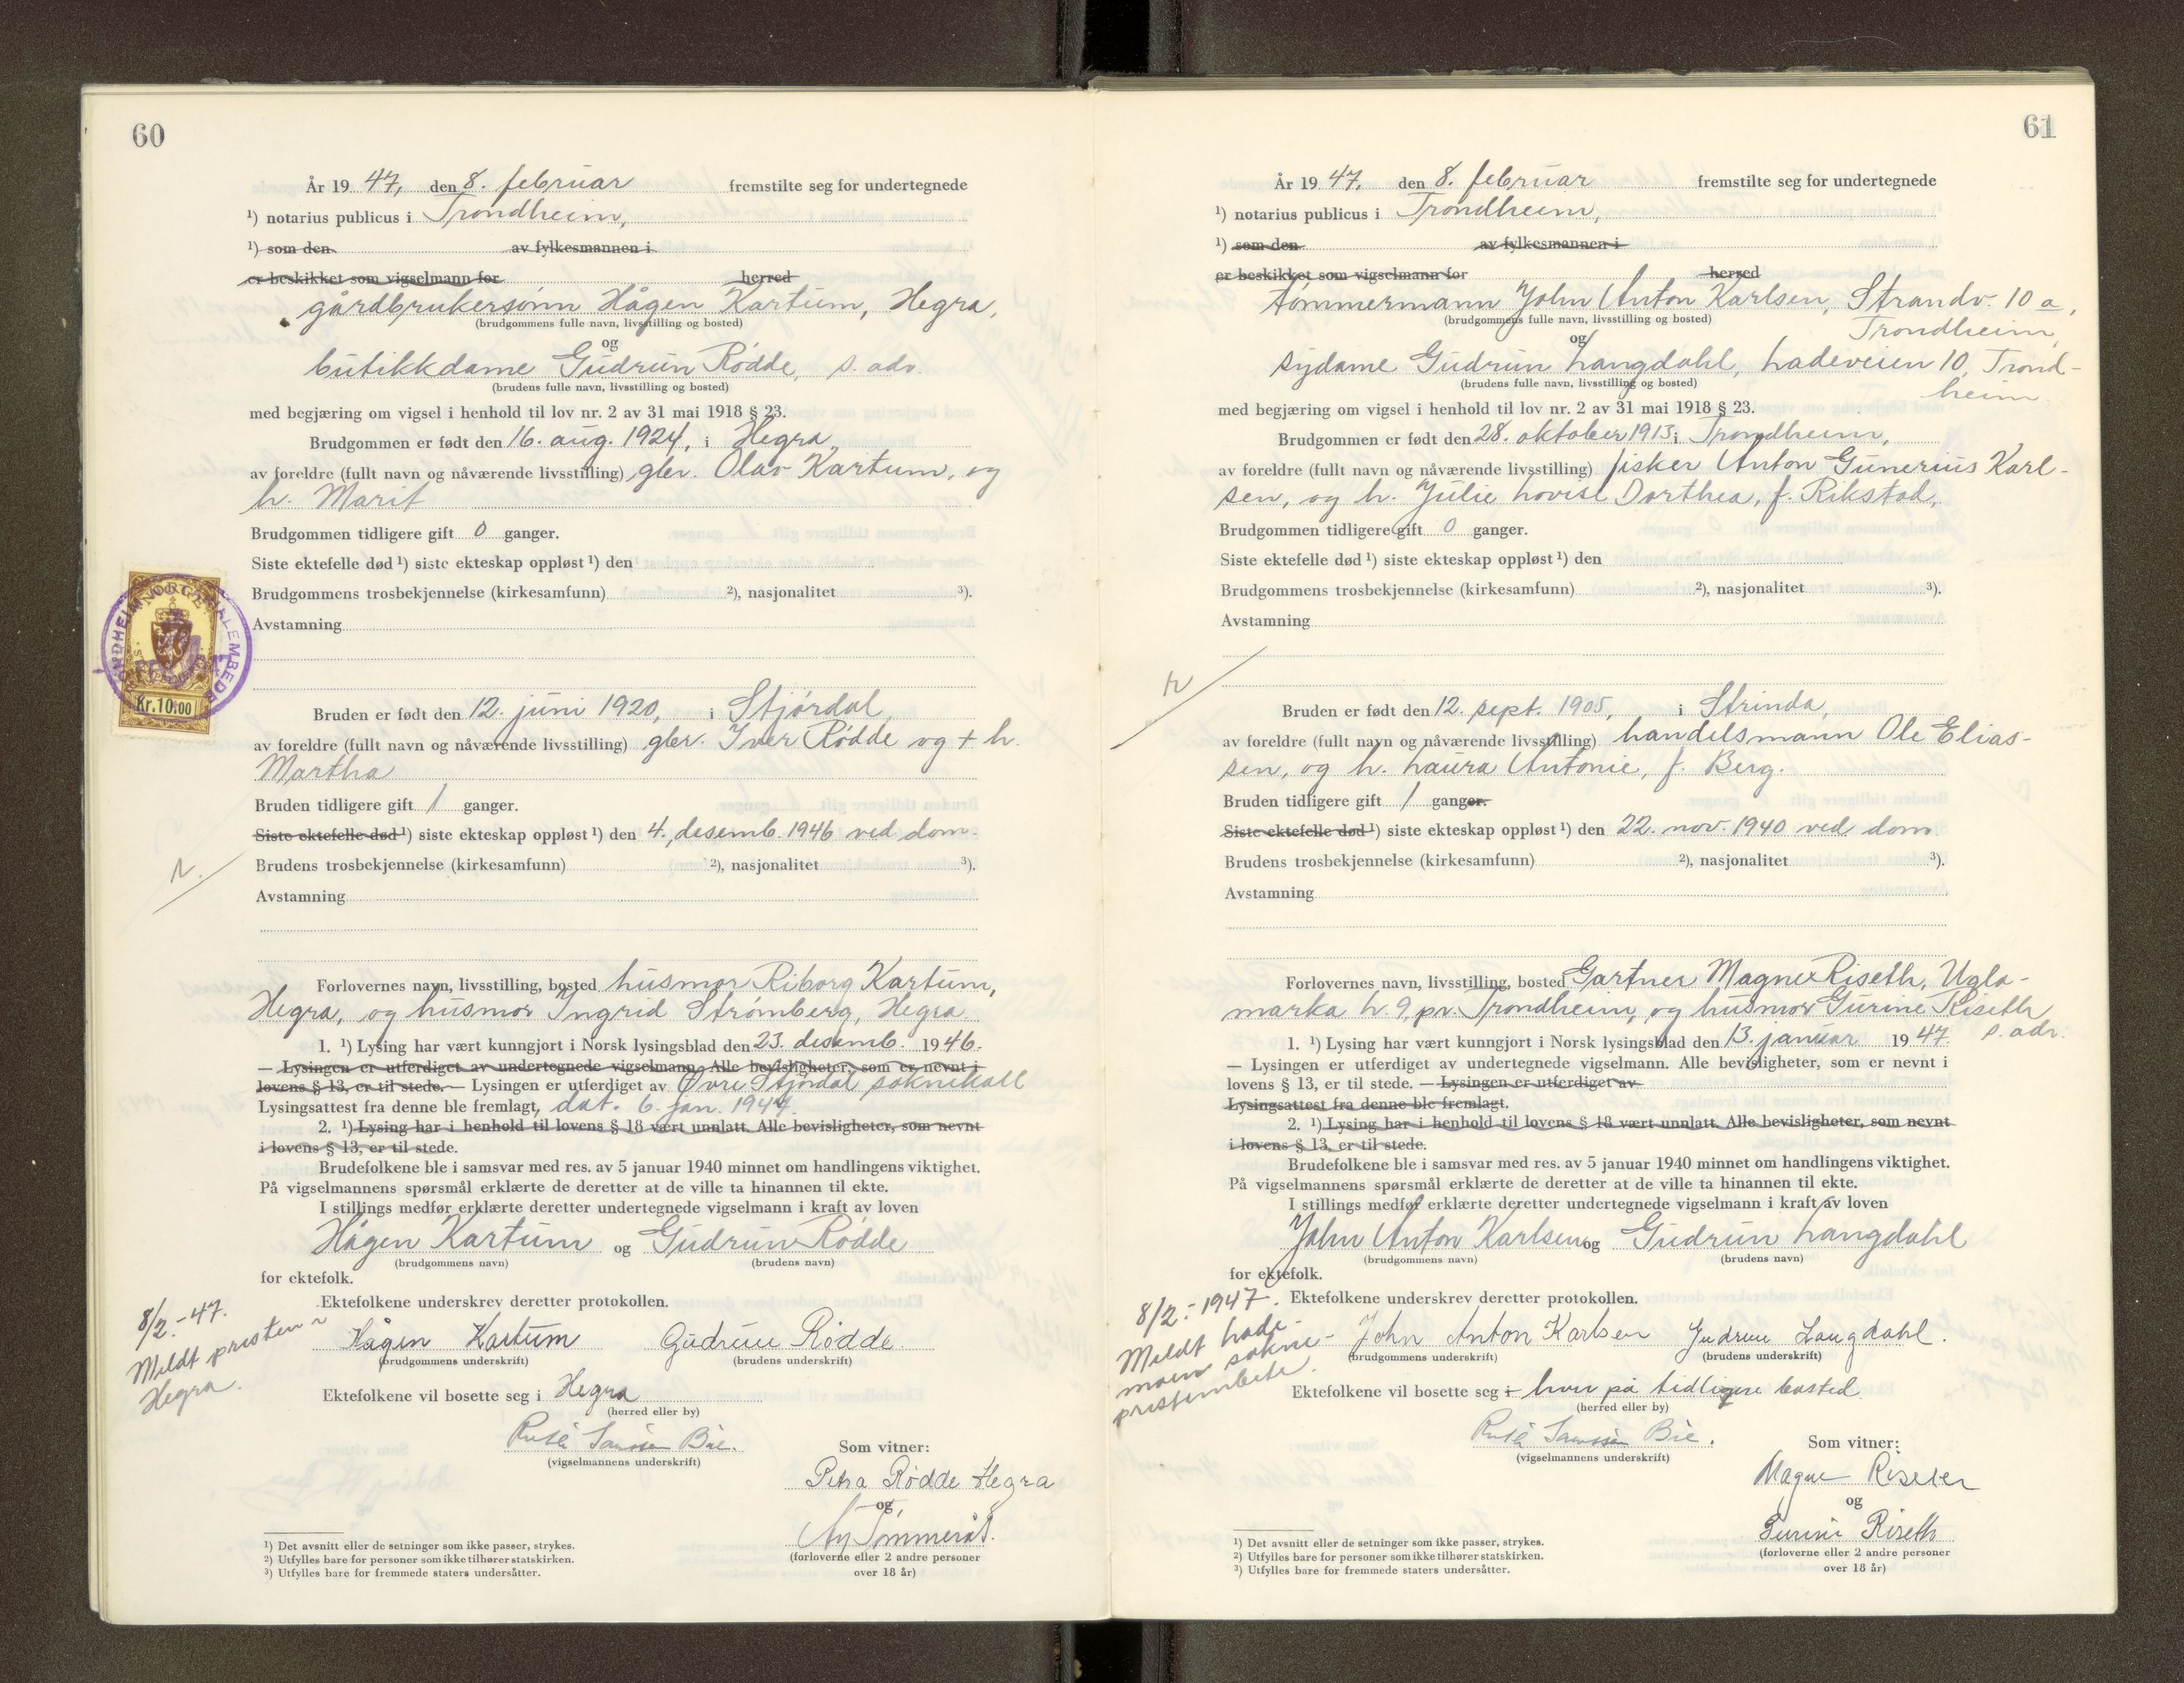 60
År 19 47, den 8. februar fremstilte seg for undertegnede
¹) notarius publicus i Trondheim,
¹) som den av fylkesmannen i
er beskikket som vigselmann for herred
gårdbrukersønn Hågen Kartum, Hegra,
(brudgommens fulle navn, livsstilling og bosted)
og
butikkdame Gudrun Rødde, s. adr.
(brudens fulle navn, livsstilling og bosted)
med begjæring om vigsel i henhold til lov nr. 2 av 31 mai 1918 § 23.
Brudgommen er født den 16. aug. 1924, i Hegra,
av foreldre (fullt navn og nåværende livsstilling) gbr. Olav Kartum, og
h. Marit
Brudgommen tidligere gift 0 ganger.
Siste ektefelle død ¹) siste ekteskap oppløst ¹) den
Brudgommens trosbekjennelse (kirkesamfunn) ²), nasjonalitet ³).
Avstamning
NORGE
STEMPELMERKE
Kr. 10.00
Bruden er født den 12. juni 1920, i Stjørdal,
av foreldre (fullt navn og nåværende livsstilling) gbr. Iver Rødde og + h.
Martha
Bruden tidligere gift 1 ganger.
Siste ektefelle død ¹) siste ekteskap oppløst ¹) den 4. desemb. 1946 ved dom.
Brudens trosbekjennelse (kirkesamfunn) ²), nasjonalitet ³).
Avstamning
Forlovernes navn, livsstilling, bosted husmor Riborg Kartum,
Hegra, og husmor Ingrid Strømberg, Hegra
1. ¹) Lysing har vært kunngjort i Norsk lysingsblad den 23. desemb. 19 46.
— Lysingen er utferdiget av undertegnede vigselmann. Alle bevisligheter, som er nevnt i
lovens § 13, er til stede. — Lysingen er utferdiget av Øvre Stjørdal soknekall
Lysingsattest fra denne ble fremlagt, dat. 6. jan. 1947.
2. ¹) Lysing har i henhold til lovens § 18 vært unnlatt. Alle bevisligheter, som nevnt
i lovens § 13, er til stede.
Brudefolkene ble i samsvar med res. av 5 januar 1940 minnet om handlingens viktighet.
På vigselmannens spørsmål erklærte de deretter at de ville ta hinannen til ekte.
I stillings medfør erklærte deretter undertegnede vigselmann i kraft av loven
Hågen Kartum og Gudrun Rødde
(brudgommens navn) (brudens navn)
for ektefolk.
Ektefolkene underskrev deretter protokollen.
8/2.-47.
Meldt presten i
Hegra.
Hågen Kartum Gudrun Rødde.
(brudgommens underskrift) (brudens underskrift)
Ektefolkene vil bosette seg i Hegra
(herred eller by)
(vigselmannens underskrift)
Som vitner:
Petra Rødde Hegra
og
(forloverne eller 2 andre personer
over 18 år)
¹) Det avsnitt eller de setninger som ikke passer, strykes.
²) Utfylles bare for personer som ikke tilhører statskirken.
³) Utfylles bare for fremmede staters undersåtter.
61
År 19 47, den 8. februar fremstilte seg for undertegnede
¹) notarius publicus i Trondheim,
¹) som den av fylkesmannen i
er beskikket som vigselmann for herred
tømmermann John Anton Karlsen, Strandv. 10 a,
Trondheim,
(brudgommens fulle navn, livsstilling og bosted)
og
sydame Gudrun Langdahl, Ladeveien 10, Trond-
heim
(brudens fulle navn, livsstilling og bosted)
med begjæring om vigsel i henhold til lov nr. 2 av 31 mai 1918 § 23.
Brudgommen er født den 28. oktober 1913 i Trondheim,
av foreldre (fullt navn og nåværende livsstilling) fisker Anton Gunerius Karl-
sen, og h. Julie Lovise Dorthea, f. Rikstad,
Brudgommen tidligere gift 0 ganger.
Siste ektefelle død ¹) siste ekteskap oppløst ¹) den
Brudgommens trosbekjennelse (kirkesamfunn) ²), nasjonalitet ³).
Avstamning
Bruden er født den 12. sept. 1905, i Strinda,
av foreldre (fullt navn og nåværende livsstilling) handelsmann Ole Elias-
sen, og h. Laura Antonie, f. Berg.
Bruden tidligere gift 1 ganger.
Siste ektefelle død ¹) siste ekteskap oppløst ¹) den 22. nov. 1940 ved dom
Brudens trosbekjennelse (kirkesamfunn) ²), nasjonalitet ³).
Avstamning
Forlovernes navn, livsstilling, bosted Gartner Magne Riseth, Ugla-
marka h. 9, pr. Trondheim, og husmor Gurine Riseth
s. adr.
1. ¹) Lysing har vært kunngjort i Norsk lysingsblad den 13. januar 19 47.
— Lysingen er utferdiget av undertegnede vigselmann. Alle bevisligheter, som er nevnt i
lovens § 13, er til stede. — Lysingen er utferdiget av
Lysingsattest fra denne ble fremlagt.
2. ¹) Lysing har i henhold til lovens § 18 vært unnlatt. Alle bevisligheter, som nevnt
i lovens § 13, er til stede.
Brudefolkene ble i samsvar med res. av 5 januar 1940 minnet om handlingens viktighet.
På vigselmannens spørsmål erklærte de deretter at de ville ta hinannen til ekte.
I stillings medfør erklærte deretter undertegnede vigselmann i kraft av loven
John Anton Karlsen og Gudrun Langdahl
(brudgommens navn) (brudens navn)
for ektefolk.
Ektefolkene underskrev deretter protokollen.
8/2.-1947.
Meldt Lade-
moen sokne-
prestembete.
John Anton Karlsen Gudrun Langdahl.
(brudgommens underskrift) (brudens underskrift)
Ektefolkene vil bosette seg i hver på tidligere bosted
(herred eller by)
(vigselmannens underskrift)
Som vitner:
Magne Riseth
og
Gurine Riseth
(forloverne eller 2 andre personer
over 18 år)
¹) Det avsnitt eller de setninger som ikke passer, strykes.
²) Utfylles bare for personer som ikke tilhører statskirken.
³) Utfylles bare for fremmede staters undersåtter.